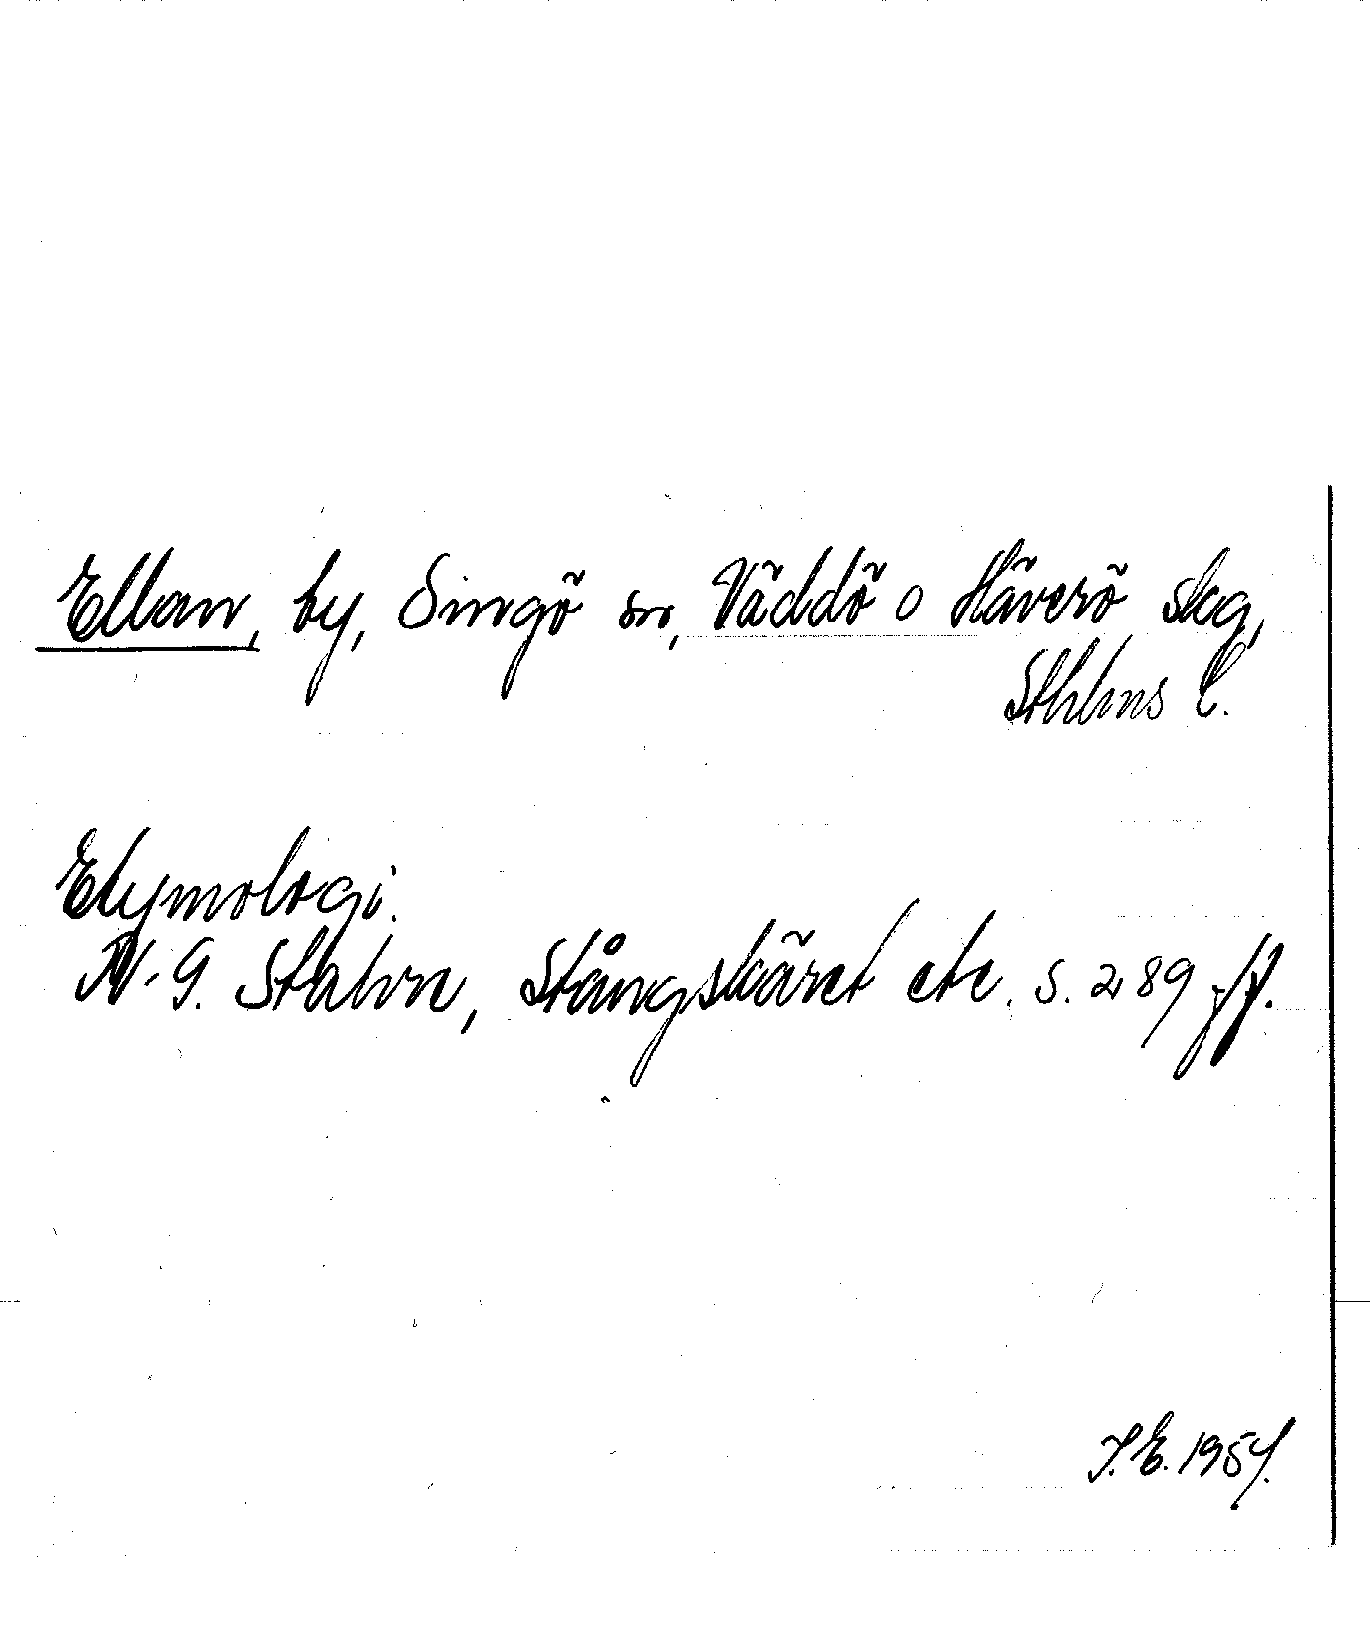 Ellan, by, Singö sn, Väddö o Häverö skg,
Sthlms l.
Etymologi.
N.G. Stahre, Stångskäret etc. s. 289 ff.
I.E. 1954.